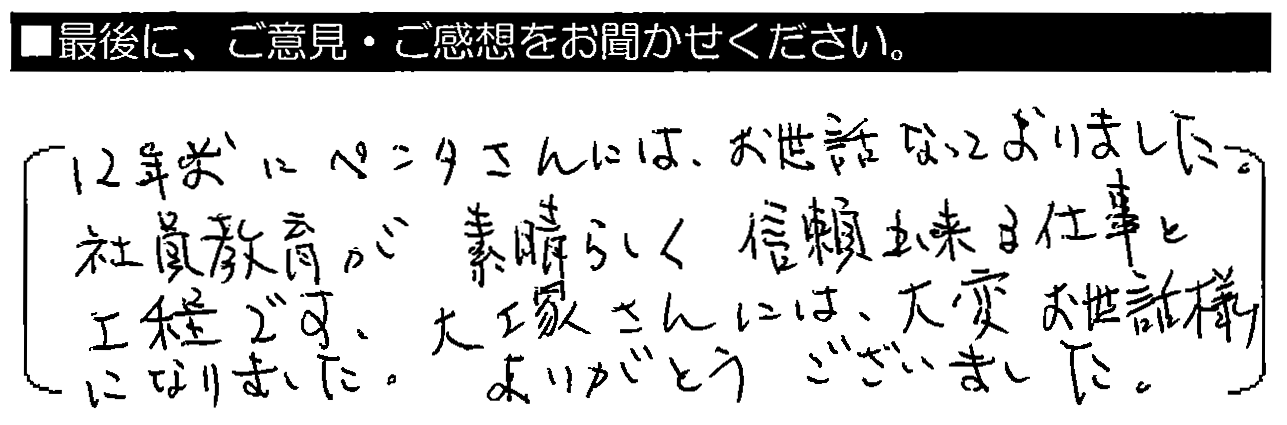 ■最後に、ご意見・ご感想をお聞かせください。
12年前にペンタさんには、お世話なっておりました。
社員教育が素晴らしく信頼出来る仕事と
工程です、大工家さんには、大変お世話様
になりました。ありがとうございました。